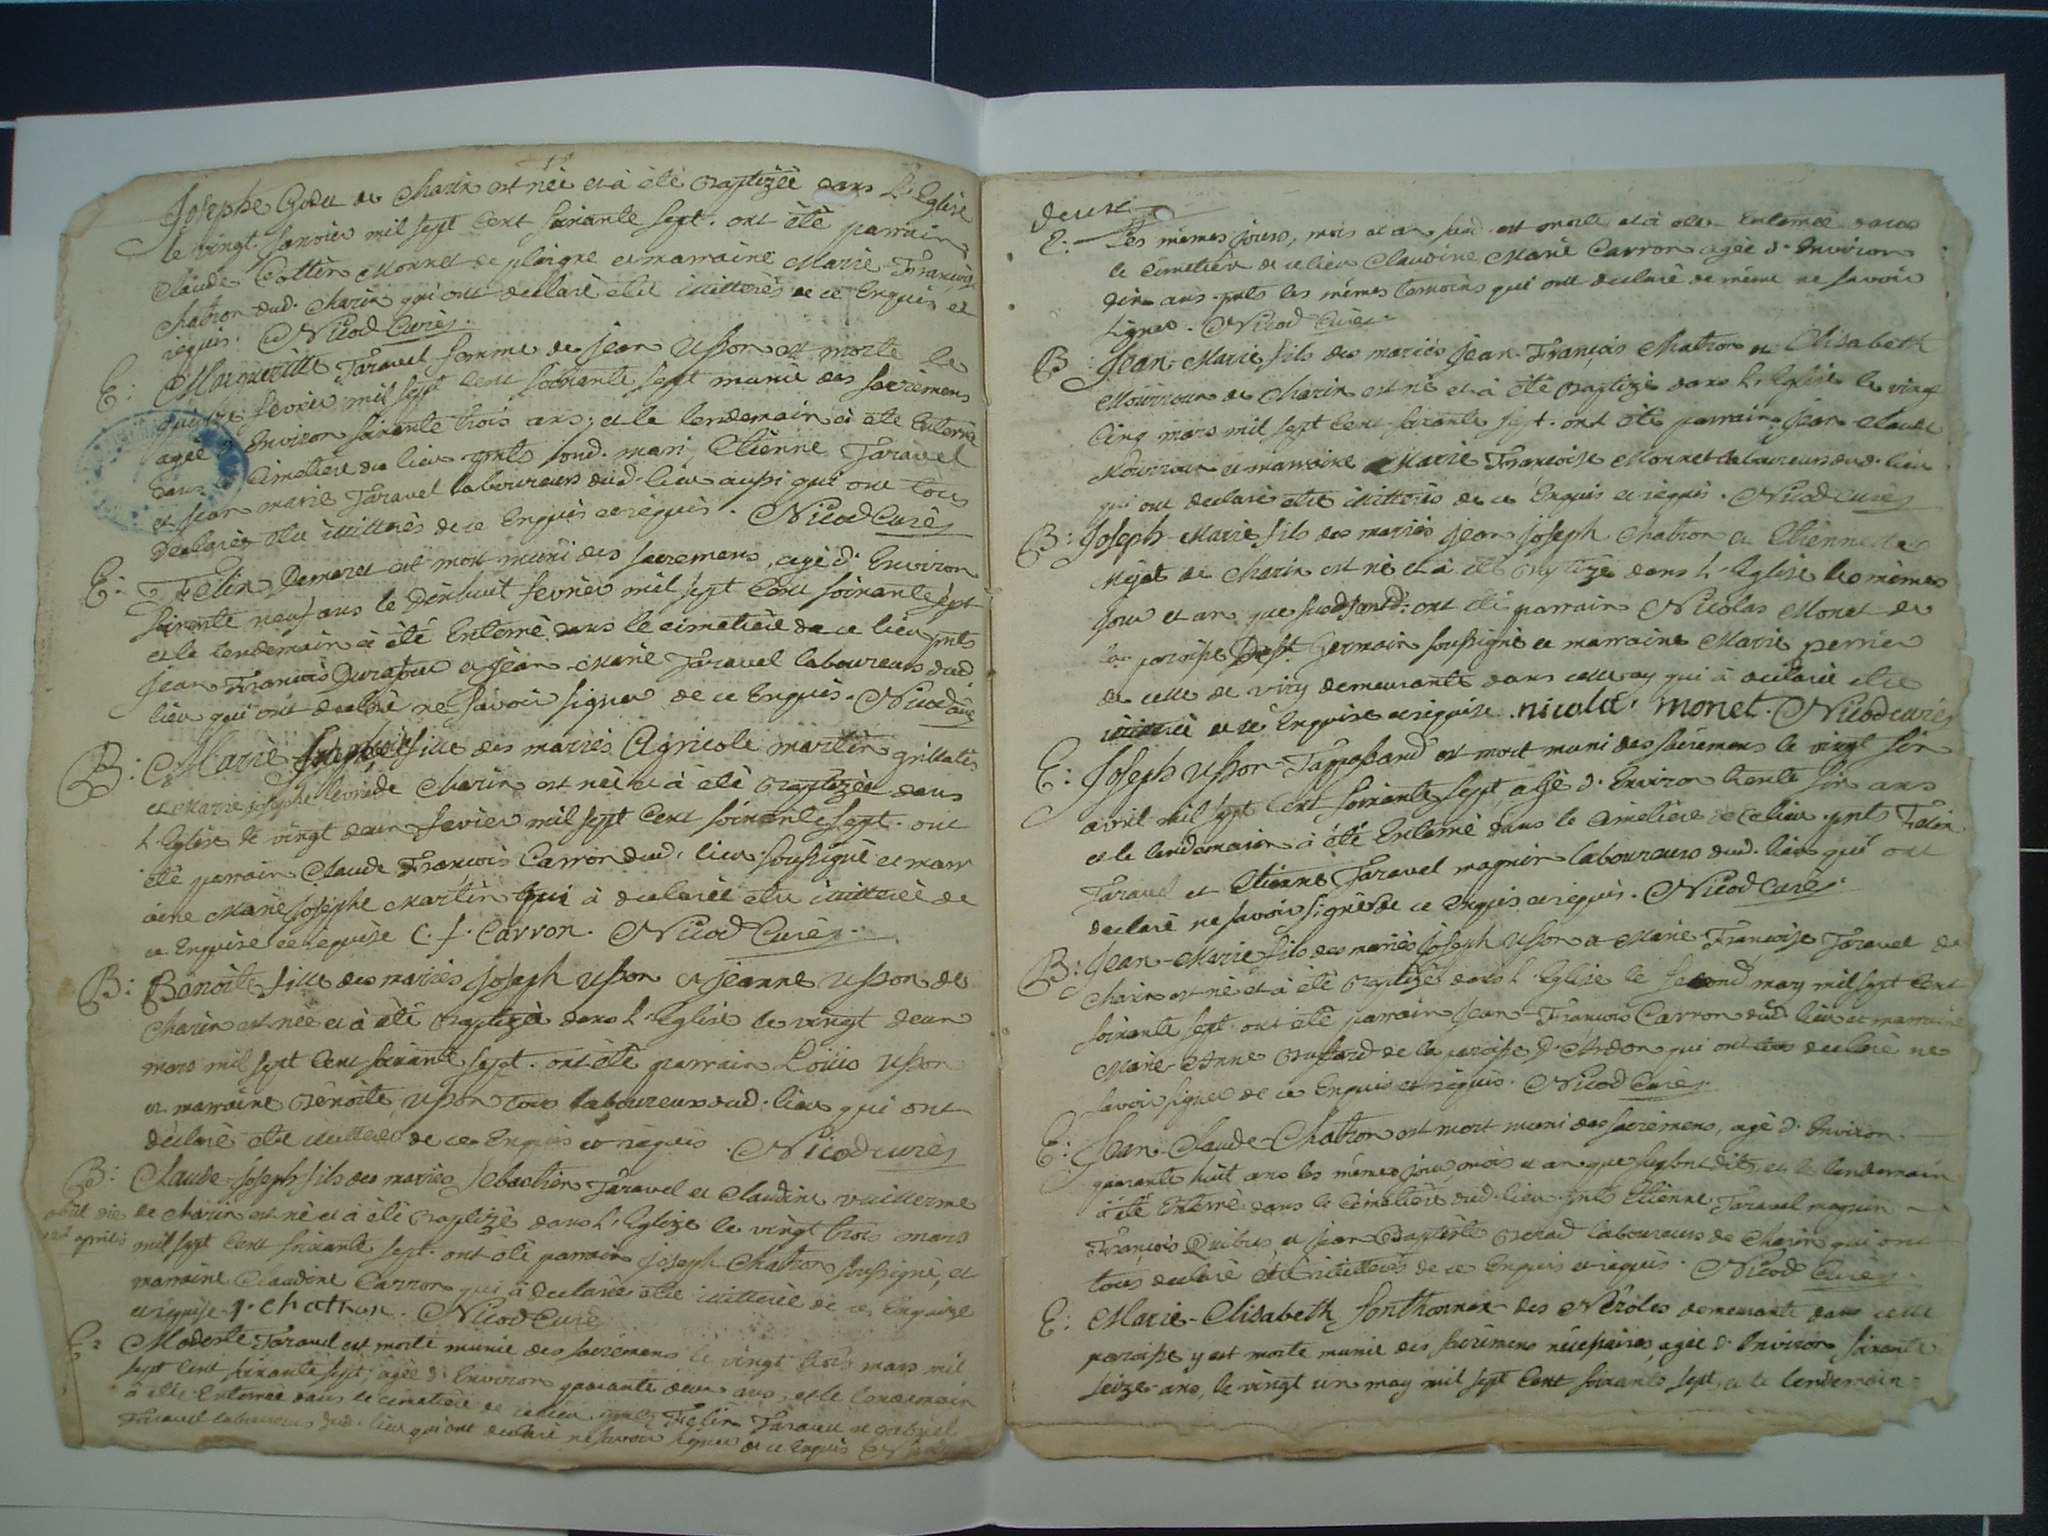 Josephe Godet de Charix est née et à été Baptizée dans L'Eglise
le vingt Janvier mil sept Cent soixante sept. ont été parrain
Claude Cottin Monnet de plagne et marraine Marie-Françoise
Chatron dud. Charix qui ont declaré etre illitterés de ce Enquis et
requis. Nicod Curé
E: Marguerite Taravel femme de Jean Usson est morte le
quinze fevrier mil sept Cent soixante sept munie des sacremens
agée d'Environ soixante trois ans; et le lendemain à été Enterrée
dans le Cimetiere du lieu pnts sond. mari, Etienne Taravel
et Jean marie Taravel laboureurs dud. lieu aussi qui ont tous
Declarés etre illitterés de ce Enquis et requis. Nicod Curé
E: Felix Demaret est mort muni des sacremens, agé d'Environ
soixante neuf ans le Dixhuit fevrier mil sept Cent soixante sept
et le lendemain à été Enterré dans le cimetiere de ce lieu pnts
Jean François et Jean-Marie Taravel laboureurs dud.
lieu qui ont declaré ne savoir signer de ce Enquis. Nicod curé
B: Marie fille des mariés Agricole martin grillatis
et Marie Josephe de Charix est née et à été Baptizée dans
L'Eglise le vingt deux fevrier mil sept Cent soixante sept. ont
été parrain Claude François Carron dud. lieu soussigné et marr
aine Marie Josephe Martin qui à declarée etre illitterée de
ce Enquise et requise C. f. Carron. Nicod Curé
B: Benoite fille des mariés Joseph Usson et Jeanne Usson de
Charix est née et à été Baptizée dans L'Eglise le vingt deux
mars mil sept Cent soixante sept. ont été parrain Louis Usson
et marraine Benoite Usson tous laboureurs dud. lieu qui ont
declaré etre illitterés de ce Enquis et requis. Nicod curé
B: Claude-Joseph fils des mariés Sebastien Taravel et Claudine vuillerme
de Charix est né et à été Baptizé dans L'Eglize le vingt trois mars
obiit die
aprilis
mil sept Cent soixante sept. ont été parrain Joseph Chatron soussigné, et
marraine Claudine Carron qui à declarée etre illitterée de ce Enquise
et requise. J. Chatron. Nicod Curé
E: Modeste Taravel est morte munie des sacremens le vingt trois mars mil
sept Cent soixante sept; agée d'Environ quarante deux ans, et le lendemain
à été Enterrée dans le cimetiere de ce lieu pnts Felix Taravel et
Taravel laboureurs dud. lieu qui ont declaré ne savoir signer de ce Enquis
deux
E: Les mêmes jours, mois et an sud. est morte et à été Enterrée dans
le Cimetière de ce lieu Claudine Marie Carron agée d'Environ
dix ans pnts les mêmes temoins qui ont declaré de même ne savoir
signer. Nicod Curé
B: Jean-Marie fils des mariés Jean-François Chatron et Elisabeth
Mourroux de Charix est né et à été Baptizé dans L'Eglise le vingt
Cinq mars mil sept Cent soixante sept. ont été parrain Jean Claude
Mourroux et marraine Marie Françoise Monnet laboureurs dud. lieu
qui ont declarés etre illitterés de ce Enquis et requis. Nicod curé
B: Joseph-Marie fils des mariés Jean Joseph Chatron et Etiennette
de Charix est né et à été Baptizé dans L'Eglise les mêmes
jour et an que ont été parrain Nicolas Monet de
la paroisse De St. Germain soussigné et marraine Marie perrier
de celle de viry demeurante dans celle cy qui à declarée etre
illitterée et de ce Enquise et requise. nicolas monet. Nicod curé
E: Joseph Usson-Tappassand est mort muni des sacremens le vingt six
avril mil sept Cent soixante sept, agé d'Environ trente six ans
et le lendemain à été Enterré dans le Cimetiere de ce lieu pnts Felix
Taravel et Etienne Taravel magnin laboureurs dud. lieu qui ont
declaré ne savoir signer de ce Enquis et requis. Nicod Curé
B: Jean-Marie fils des mariés Joseph Usson et Marie Françoise Taravel de
Charix est né et à été Baptizé dans L'Eglise le second may mil sept Cent
soixante sept ont été parrain Jean-François Carron dud. lieu et marraine
Marie-Anne de la paroisse d'Ardon qui ont declaré ne
savoir signer de ce Enquis et requis. Nicod Curé
E: Jean-Claude-Chatron est mort muni des sacremens, agé d'Environ
quarante huit ans les mêmes jour, mois et an que dits, et le lendemain
à été Enterré dans le Cimetiere dud. lieu pnts Etienne Taravel magnin
François et Jean Baptiste laboureurs de Charix qui ont
tous declaré etre illitterés de ce Enquis et requis. Nicod Curé
E: Marie-Elisabeth Ponthonnax des Neyroles demeurante dans cette
paroisse y est morte munie des sacremens nécessaires, agée d'Environ soixante
seize ans, le vingt un may mil sept Cent soixante sept, et le lendemain